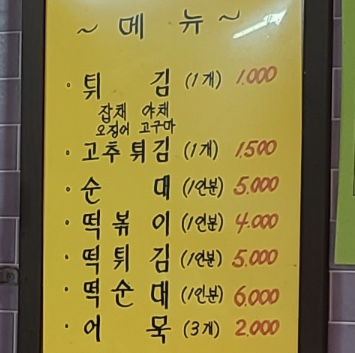 ~ 메 뉴 ~
· 튀 김 (1개) 1.000
잡채 야채
오징어 고구마
· 고추 튀김 (1개) 1.500
· 순 대 (1인분) 5.000
· 떡 볶 이 (1인분) 4.000
· 떡 튀 김 (1인분) 5.000
· 떡 순 대 (1인분) 6.000
· 어 묵 (3개) 2.000